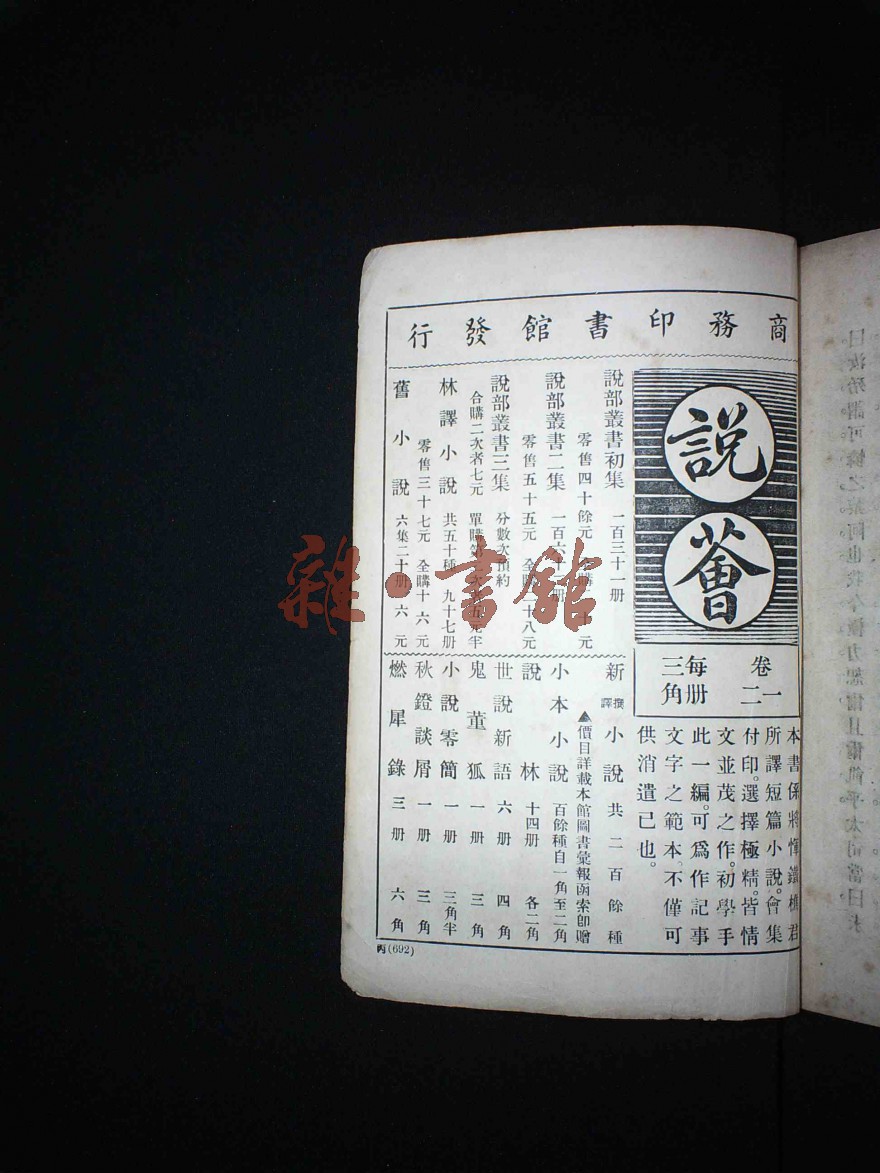 商務印書館發行
説薈
卷一二
每册三角
本書係將惲鐵樵君
所譯短篇小說。會集
付印。選擇極精。皆情
文並茂之作。初學手
此一編。可爲作記事
文字之範本。不僅可
供消遣已也。
說部叢書初集 一百三十一册
零售四十餘元
說部叢書二集 一百六 册
零售五十五元 全購二十八元
說部叢書三集 分數次預約
合購二次者七元 單購第 次 元半
林譯小說 共五十種 九十七册
零售三十七元 全購十六元
舊小說 六集二十册 六元
新撰譯小說 共二百餘種
▲價目詳載本館圖書彙報函索卽贈
小本小說 百餘種自一角至二角
說林 十四册 各二角
世說新語 六册 四角
鬼董狐 一册 三角
小說零簡 一册 三角半
秋鐙談屑 一册 三角
燃犀錄 三册 六角
丙(692)
雜·書館